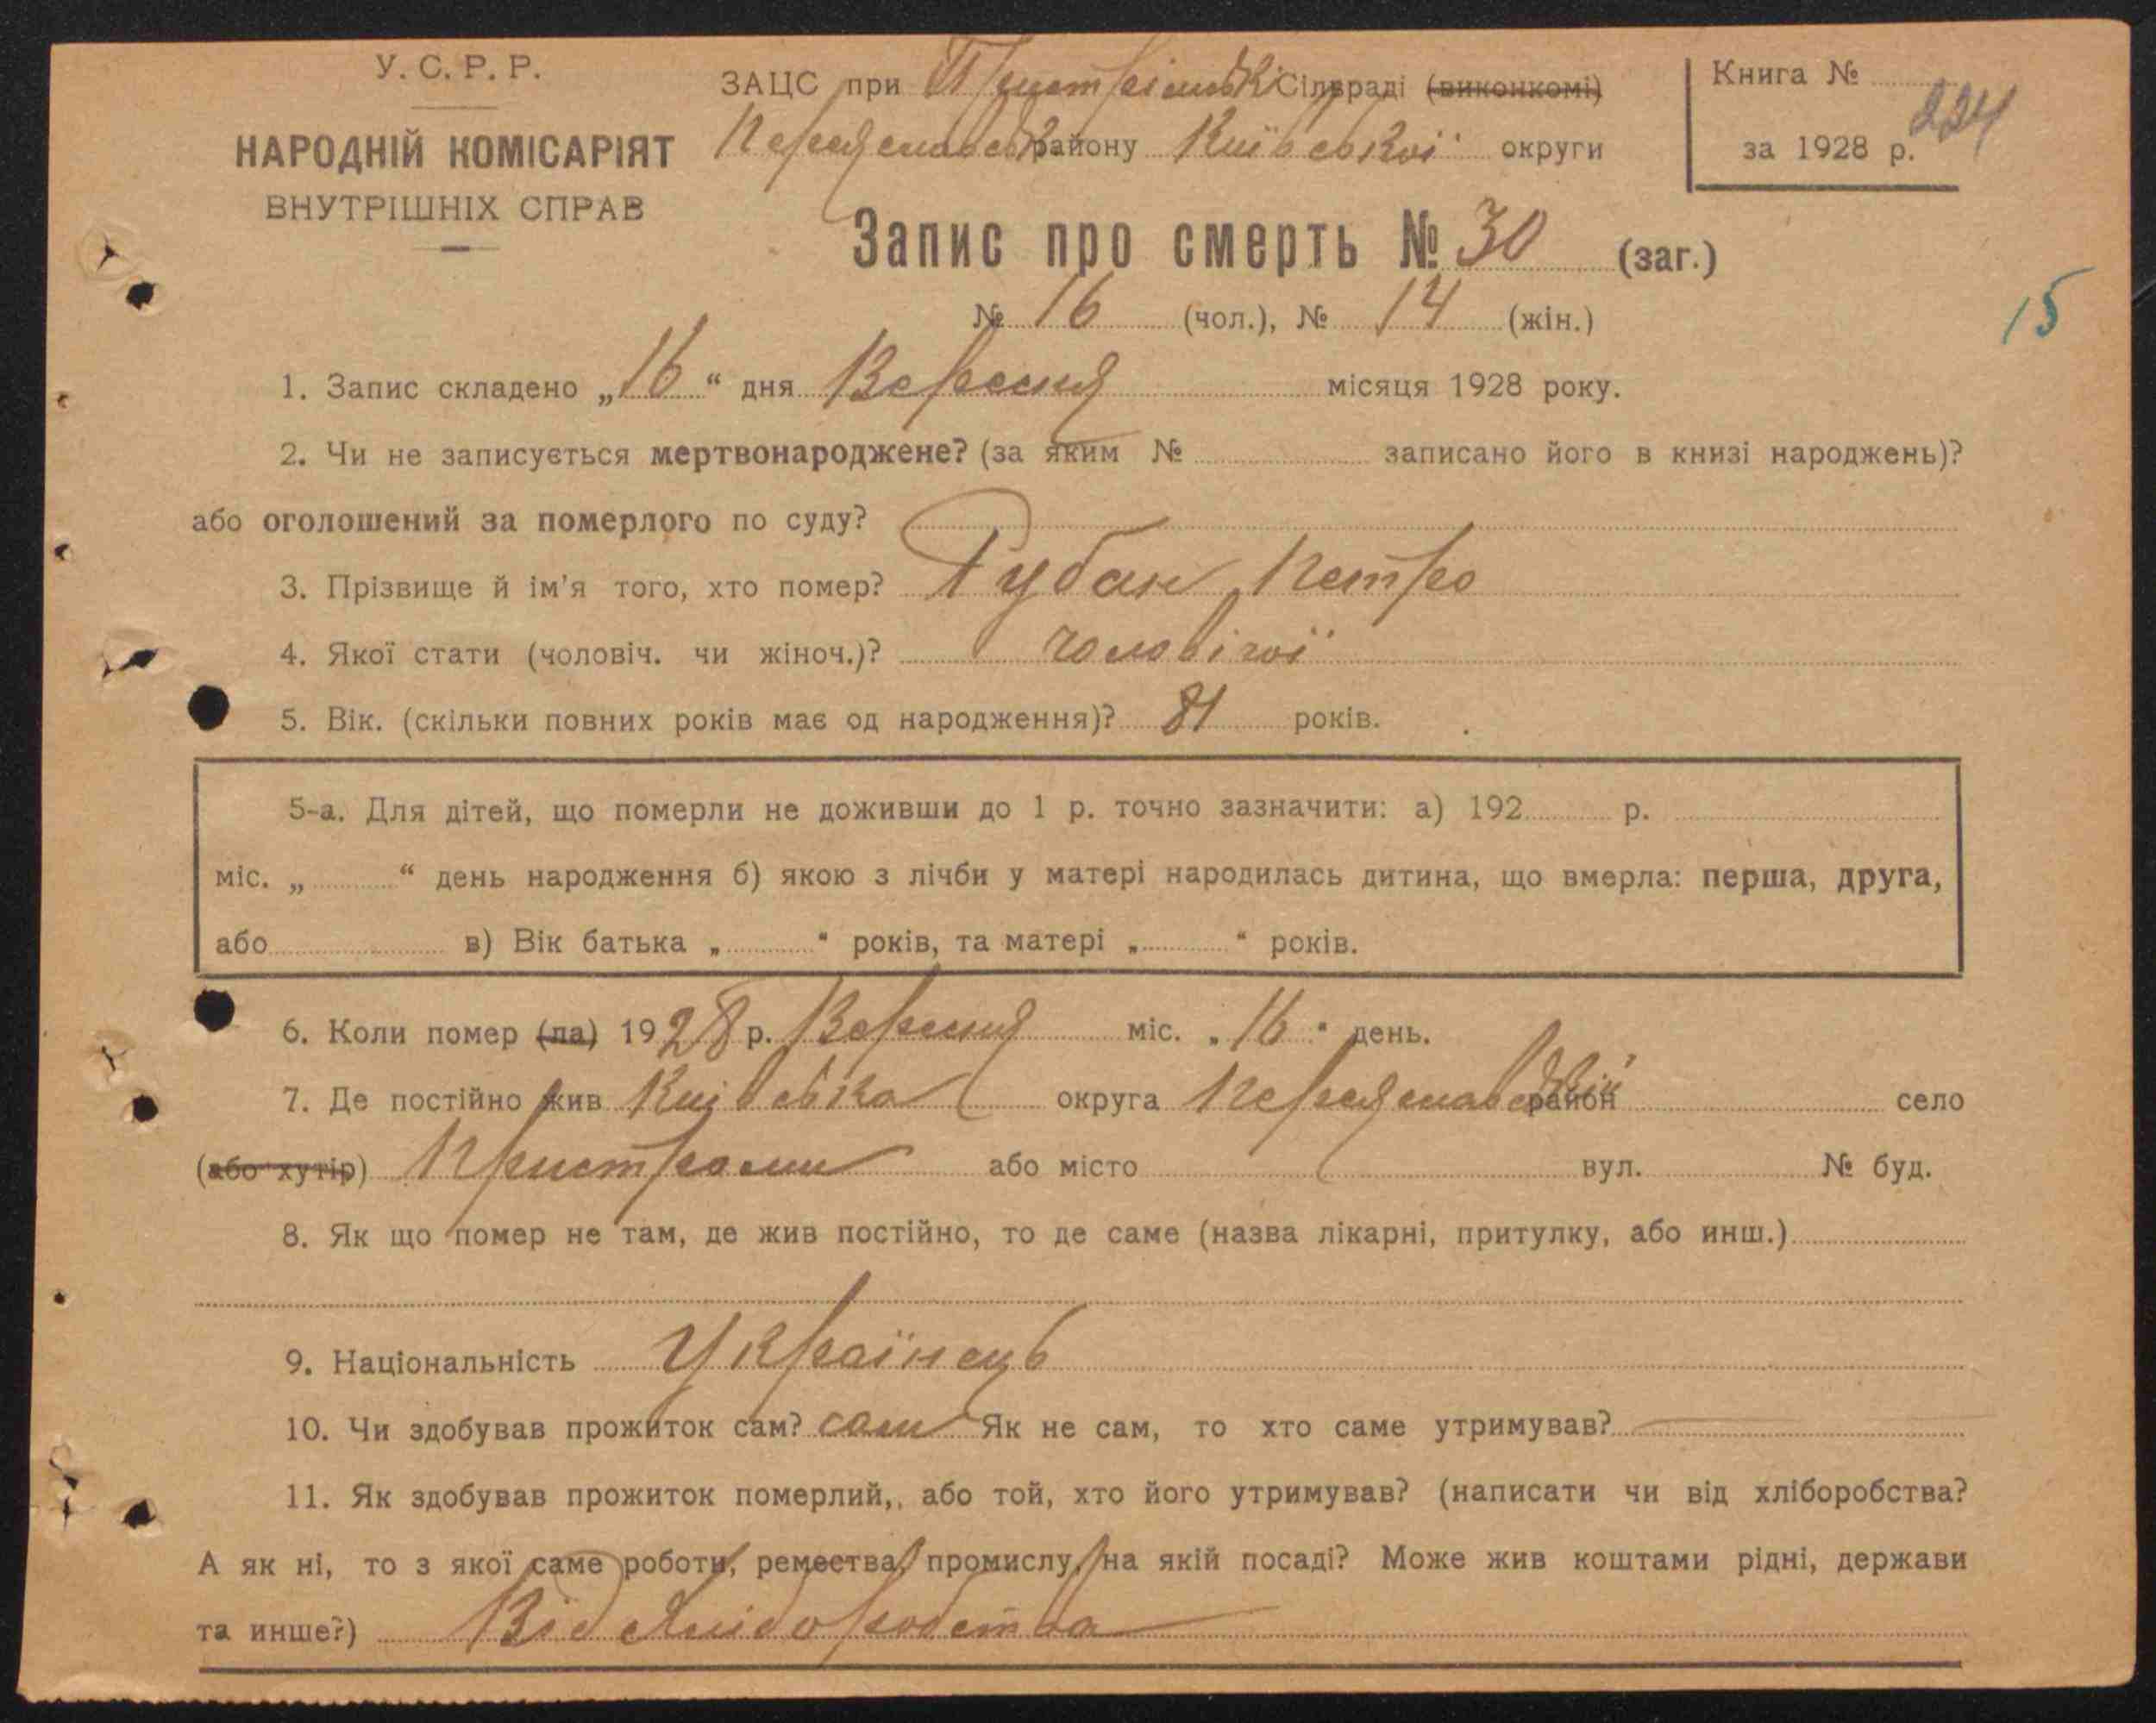 У. С. Р. Р.
НАРОДНІЙ КОМІСАРІЯТ
ВНУТРІШНІХ СПРАВ
ЗАЦС при Пристрімській Сільраді (виконкомі)
Переяславськ району Київської округи
Книга №
224
за 1928 р.
Запис про смерть № 30 (заг.)
№ 16 (чол.), № 14 (жін.)
15
1. Запис складено „16“ дня Вересня місяця 1928 року.
2. Чи не записується мертвонароджене? (за яким № записано його в книзі народжень)?
або оголошений за померлого по суду?
3. Прізвище й ім'я того, хто помер? Рубан Петро
4. Якої стати (чоловіч. чи жіноч.)? чоловічої
5. Вік. (скільки повних років має од народження)? 81 років.
5-а. Для дітей, що померли не доживши до 1 р. точно зазначити: а) 192 р.
міс. „ “ день народження б) якою з лічби у матері народилась дитина, що вмерла: перша, друга,
або в) Вік батька „ “ років, та матері „ “ років.
6. Коли помер (ла) 1928 р. Вересня міс. „16“ день.
7. Де постійно жив Київська округа Переяславський район село
(або хутір) Пристроми або місто вул. № буд.
8. Як що помер не там, де жив постійно, то де саме (назва лікарні, притулку, або инш.)
9. Національність Українець
10. Чи здобував прожиток сам? сам Як не сам, то хто саме утримував?
11. Як здобував прожиток померлий, або той, хто його утримував? (написати чи від хліборобства?
А як ні, то з якої саме роботи, ремества, промислу, на якій посаді? Може жив коштами рідні, держави
та инше?) Від хліборобства